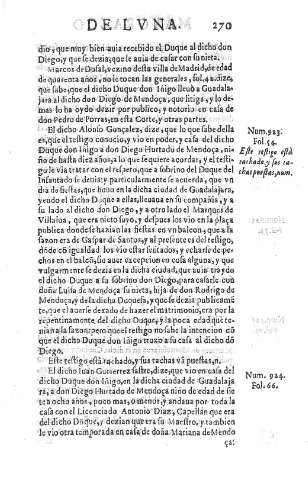 DE LVNA. 270
dio, que muy bien auia recebido el Duque al dicho don
Diego, y que se dezia, que le auia de casar con su nieta.
Marcos de Dosal, vezino desta villa de Madrid, de edad
de quarenta años, no le tocan las generales, fol. 42. dize,
que sabe, que el dicho Duque don Iñigo lleuò a Guadala-
jara al dicho don Diego de Mendoça, que litiga, y lo de-
mas lo ha oydo dezir por publico, y notorio en casa de
don Pedro de Porras, en esta Corte, y otras partes.
El dicho Alonso Gonçalez, dize, que lo que sabe della
es, que el testigo conocio, y vio en poder, y casa del dicho
Duque don Iñigo a don Diego Hurtado de Mendoça, ni-
ño de hasta diez años, a lo que se quiere acordar, y el testi-
go le via tratar con el respeto, que a sobrino del Duque del
Infantado se deuia; y particularmente se acuerda, que vn
dia de fiestas, que huuo en la dicha ciudad de Guadalajara,
yendo el Duque a ellas, lleuaua en su compañia, y a
su lado al dicho don Diego, y a otro lado el Marques de
Villalua, que era nieto suyo, y despues los vio en la plaça
publica donde se hazian las fiestas en vn balcon, que a la
sazon era de Gaspar de Santos, y al presente es del testigo,
dóde có igualdad los vio estar sentados, y echarse de pe-
chos en el balcō, sin auer excepcion en cosa alguna, y que
vulgarmente se dezia en la dicha ciudad, que auia traydo
el dicho Duque a su sobrino don Diego, para casarle con
doña Luisa de Mendoça su nieta, hija de don Rodrigo de
Mendoça, y de la dicha Duquesa, y que se dezia publicamē
te, que el auerse dexado de hazer el matrimonio, era por la
repentina muerte del dicho Duque, y la poca edad que te-
nian a la sazon, pero que el testigo no sabe la intencion có
que el dicho Duque don Iñigo traxo a su casa al dicho dó
Diego.
Este testigo està tachado, y sus tachas và puestas, n.
El dicho Iuan Gutierrez sastre, dize, que vio en casa del
dicho Duque don Iñigo, en la dicha ciudad de Guadalaja
ra, a don Diego Hurtado de Mendoça niño de edad de sie
te o ocho años, poco mas, o menos, y andaua por toda la
casa con el Licenciado Antonio Diaz, Capellan que era
del dicho Duque, y dezian que era su Maestro, y tambien
le vio otra temporada en casa de doña Mariana de Mendo
ça:
Num. 923.
Fol. 54.
Este testigo està
tachado, y sus ta-
chas puestas, num.
Num. 924.
Fol. 66.